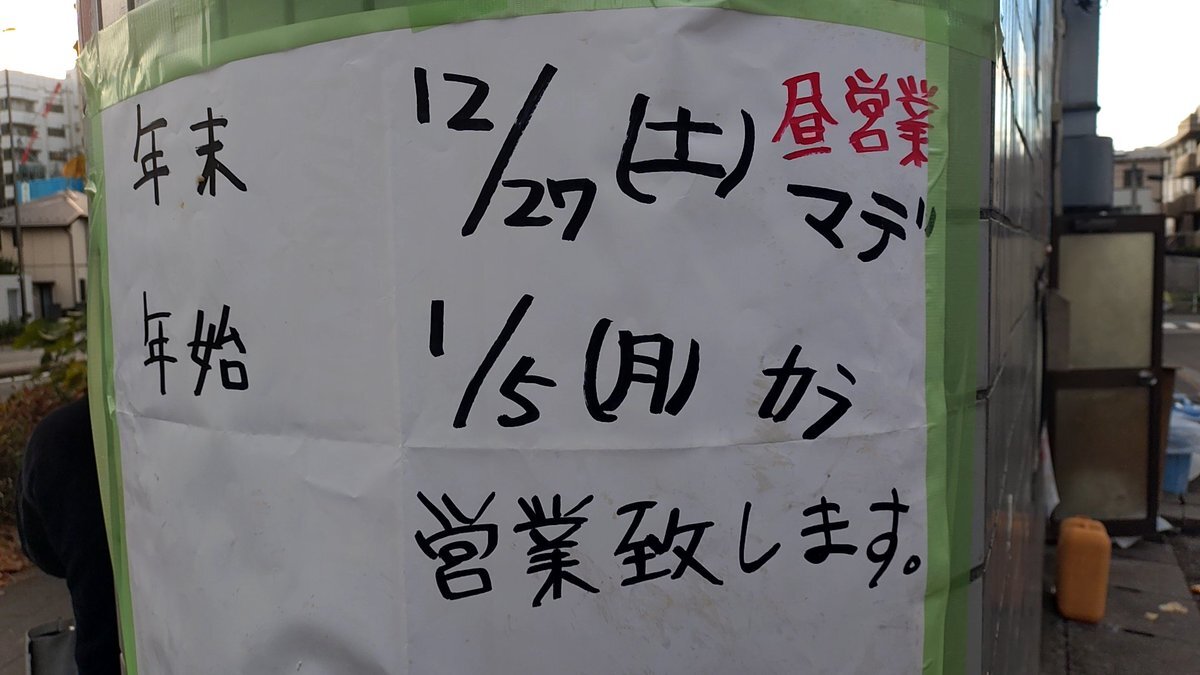 年末 12/27(土) 昼営業
マデ
年始 1/5(月) から
営業致します。